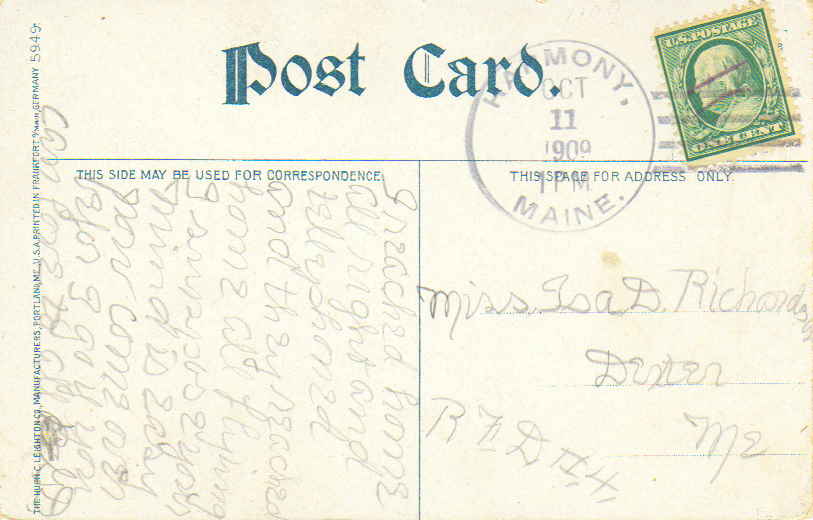 Post Card.
U.S. POSTAGE
ONE CENT
HARMONY,
OCT
11
1909
1 PM
MAINE.
THIS SIDE MAY BE USED FOR CORRESPONDENCE.
THIS SPACE FOR ADDRESS ONLY.
I reached home
all right and
and they reached
home all flying
I your
mind is easy
now come over
I go if you
can
Miss. Isa D. Richardson
Dexter
Me
R F D #4,
THE HUGH C. LEIGHTON CO., MANUFACTURERS, PORTLAND, ME., U.S.A. PRINTED IN FRANKFORT o/MAIN, GERMANY 5949.